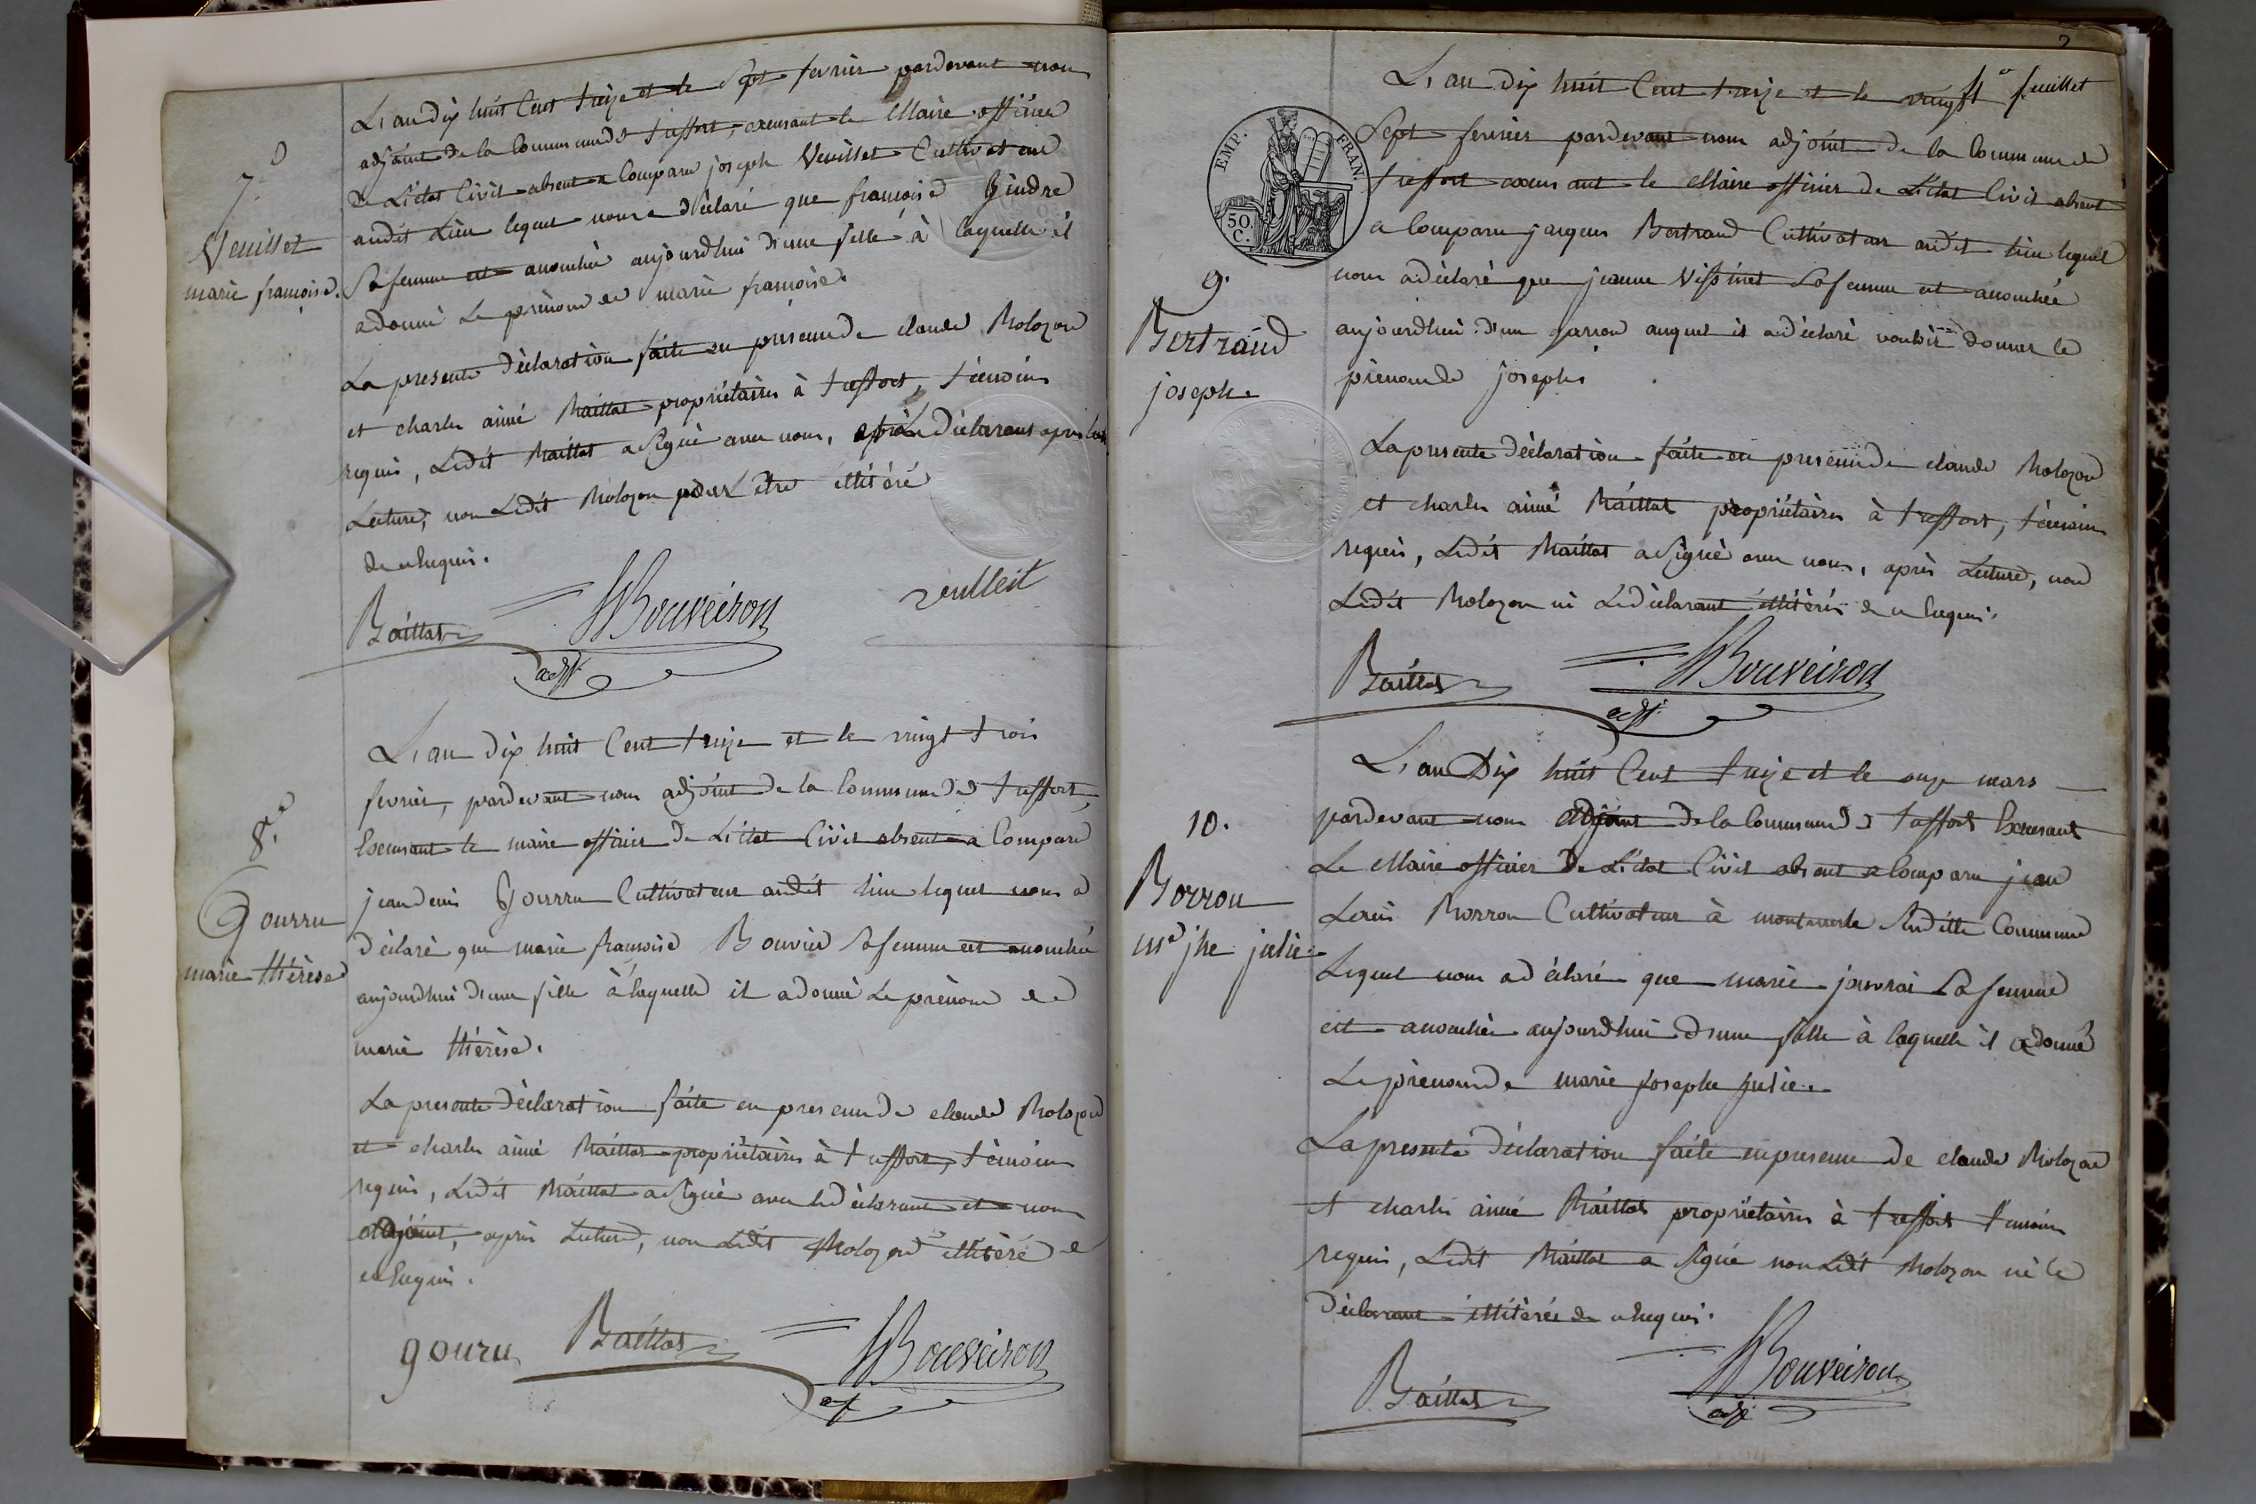 7.e
Veuillet
marie françoise.
L'an dix huit Cent treize et le Sept fevrier pardevant nous
adjoint de la Commune de treffort, exerçant le Maire officier
de L'état Civil absent a Comparu joseph Veuillet Cultivateur
audit Lieu lequel nous a déclaré que françoise Gindre
Sa femme est accouchée aujourdhui d'une fille à laquelle il
a donné Le prénom de marie françoise.
La presente déclaration faite en presence de claude Molozon
et charles aimé Baillat propriétaires à treffort, témoins
requis, Ledit Baillat a Signé avec nous, Déclarant après
Lecture, non Ledit Molozon pour être illitéré
de ce Requis.
Baillat Bouveiron veulleit
adjt
8.e
Gourru
marie thérèse
L'an dix huit Cent treize et le vingt trois
fevrier, pardevant nous adjoint de la Commune de treffort,
Exerçant le maire officier de L'état Civil absent a Comparu
jean denis Gourru Cultivateur audit lieu lequel nous a
déclaré que marie françoise Bouvier Sa femme est accouchée
aujourdhui d'une fille à laquelle il a donné Le prénom de
marie thérèse.
La presente déclaration faite en presence de claude Molozon
et charles aimé Baillat propriétaires à treffort, témoins
requis, Ledit Baillat a Signé avec le déclarant et nous
adjoint, après Lecture, non Ledit Molozon illitéré de
ce Requis.
gouru Baillat Bouveiron
adjt
2
1er feuillet
EMP. FRAN.
50.
C.
9.
Bertrand
joseph
L'an dix huit Cent treize et le vingt
Sept fevrier pardevant nous adjoint de la Commune de
treffort exerçant le Maire officier de L'état Civil absent
a Comparu jacques Bertrand Cultivateur audit lieu lequel
nous a déclaré que jeanne Sa femme est accouchée
aujourdhui d'un garçon auquel il a déclaré vouloir donner le
prénom de joseph
La presente déclaration faite en presence de claude Molozon
et charles aimé Baillat propriétaires à treffort, témoins
requis, Ledit Baillat a Signé avec nous, après Lecture, non
Ledit Molozon ni Le déclarant illitérés de ce Requis.
Baillat Bouveiron
adjt.
10.
Borron
m.e jhe julie
L'an Dix huit Cent treize et le onze mars
pardevant nous adjoint de la Commune de treffort Exerçant
Le Maire officier de L'état Civil absent a Comparu jean
Louis Borron Cultivateur à montmerle Suditte Commune
Lequel nous a déclaré que marie Sa femme
est accouchée aujourdhui d'une fille à laquelle il a donné
Le prénom de marie josephe julie
La presente déclaration faite en presence de claude Molozon
et charles aimé Baillat propriétaires à treffort témoins
requis, Ledit Baillat a Signé non Ledit Molozon ni le
déclarant illitérés de ce Requis.
Baillat Bouveiron
adjt